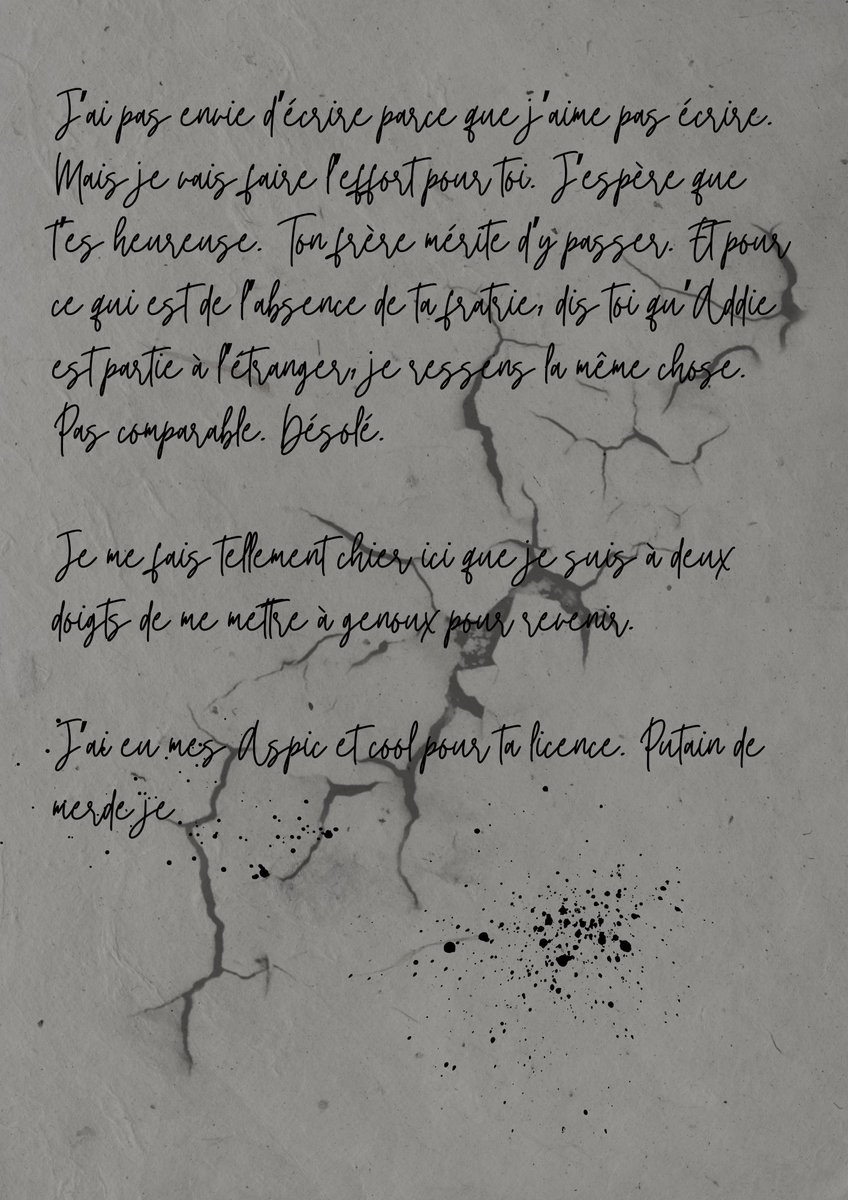 J'ai pas envie d'écrire parce que j'aime pas écrire.
Mais je vais faire l'effort pour toi. J'espère que
t'es heureuse. Ton frère mérite d'y passer. Et pour
ce qui est de l'absence de ta fratrie, dis toi qu'Addie
est partie à l'étranger, je ressens la même chose.
Pas comparable. Désolé.
Je me fais tellement chier ici que je suis à deux
doigts de me mettre à genoux pour revenir.
J'ai eu mes Aspic et cool pour ta licence. Putain de
merde je